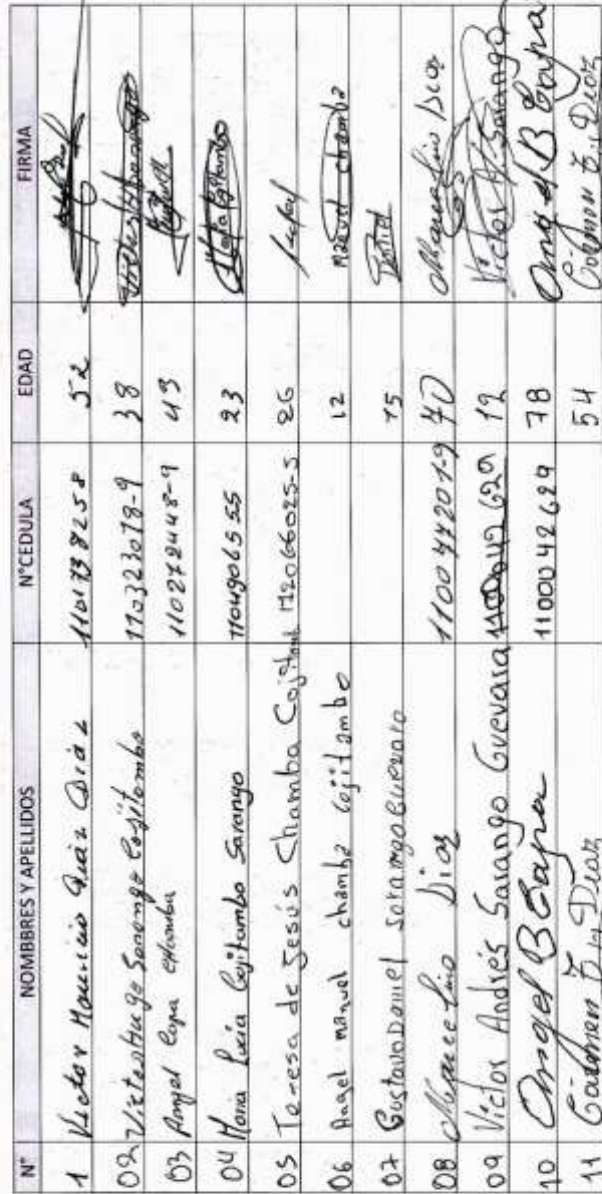 N° NOMBBRES Y APELLIDOS N°CEDULA EDAD FIRMA
1 Victor Mauricio Díaz 1101738258 52
02 Victor Hugo Sarango Cojitambo 110323078-9 38
03 Angel Capa chamba 110272448-9 43
04 Maria Lucia Cojitambo Sarango 1104906555 23
05 Teresa de Jesús Chamba 26
06 Angel manuel chamba Cojitambo 12 Manuel chamba
07 Gustavo Daniel Sarango Guevara 15 Daniel
08 Marcelino Díaz 110044201-9 70 Marcelino Díaz
09 Víctor Andrés Sarango Guevara 12 Víctor A. Sarango
10 Angel B Capa 1100042629 78 Angel B Capa
11 Carmen E. Díaz 54 Carmen E. Díaz